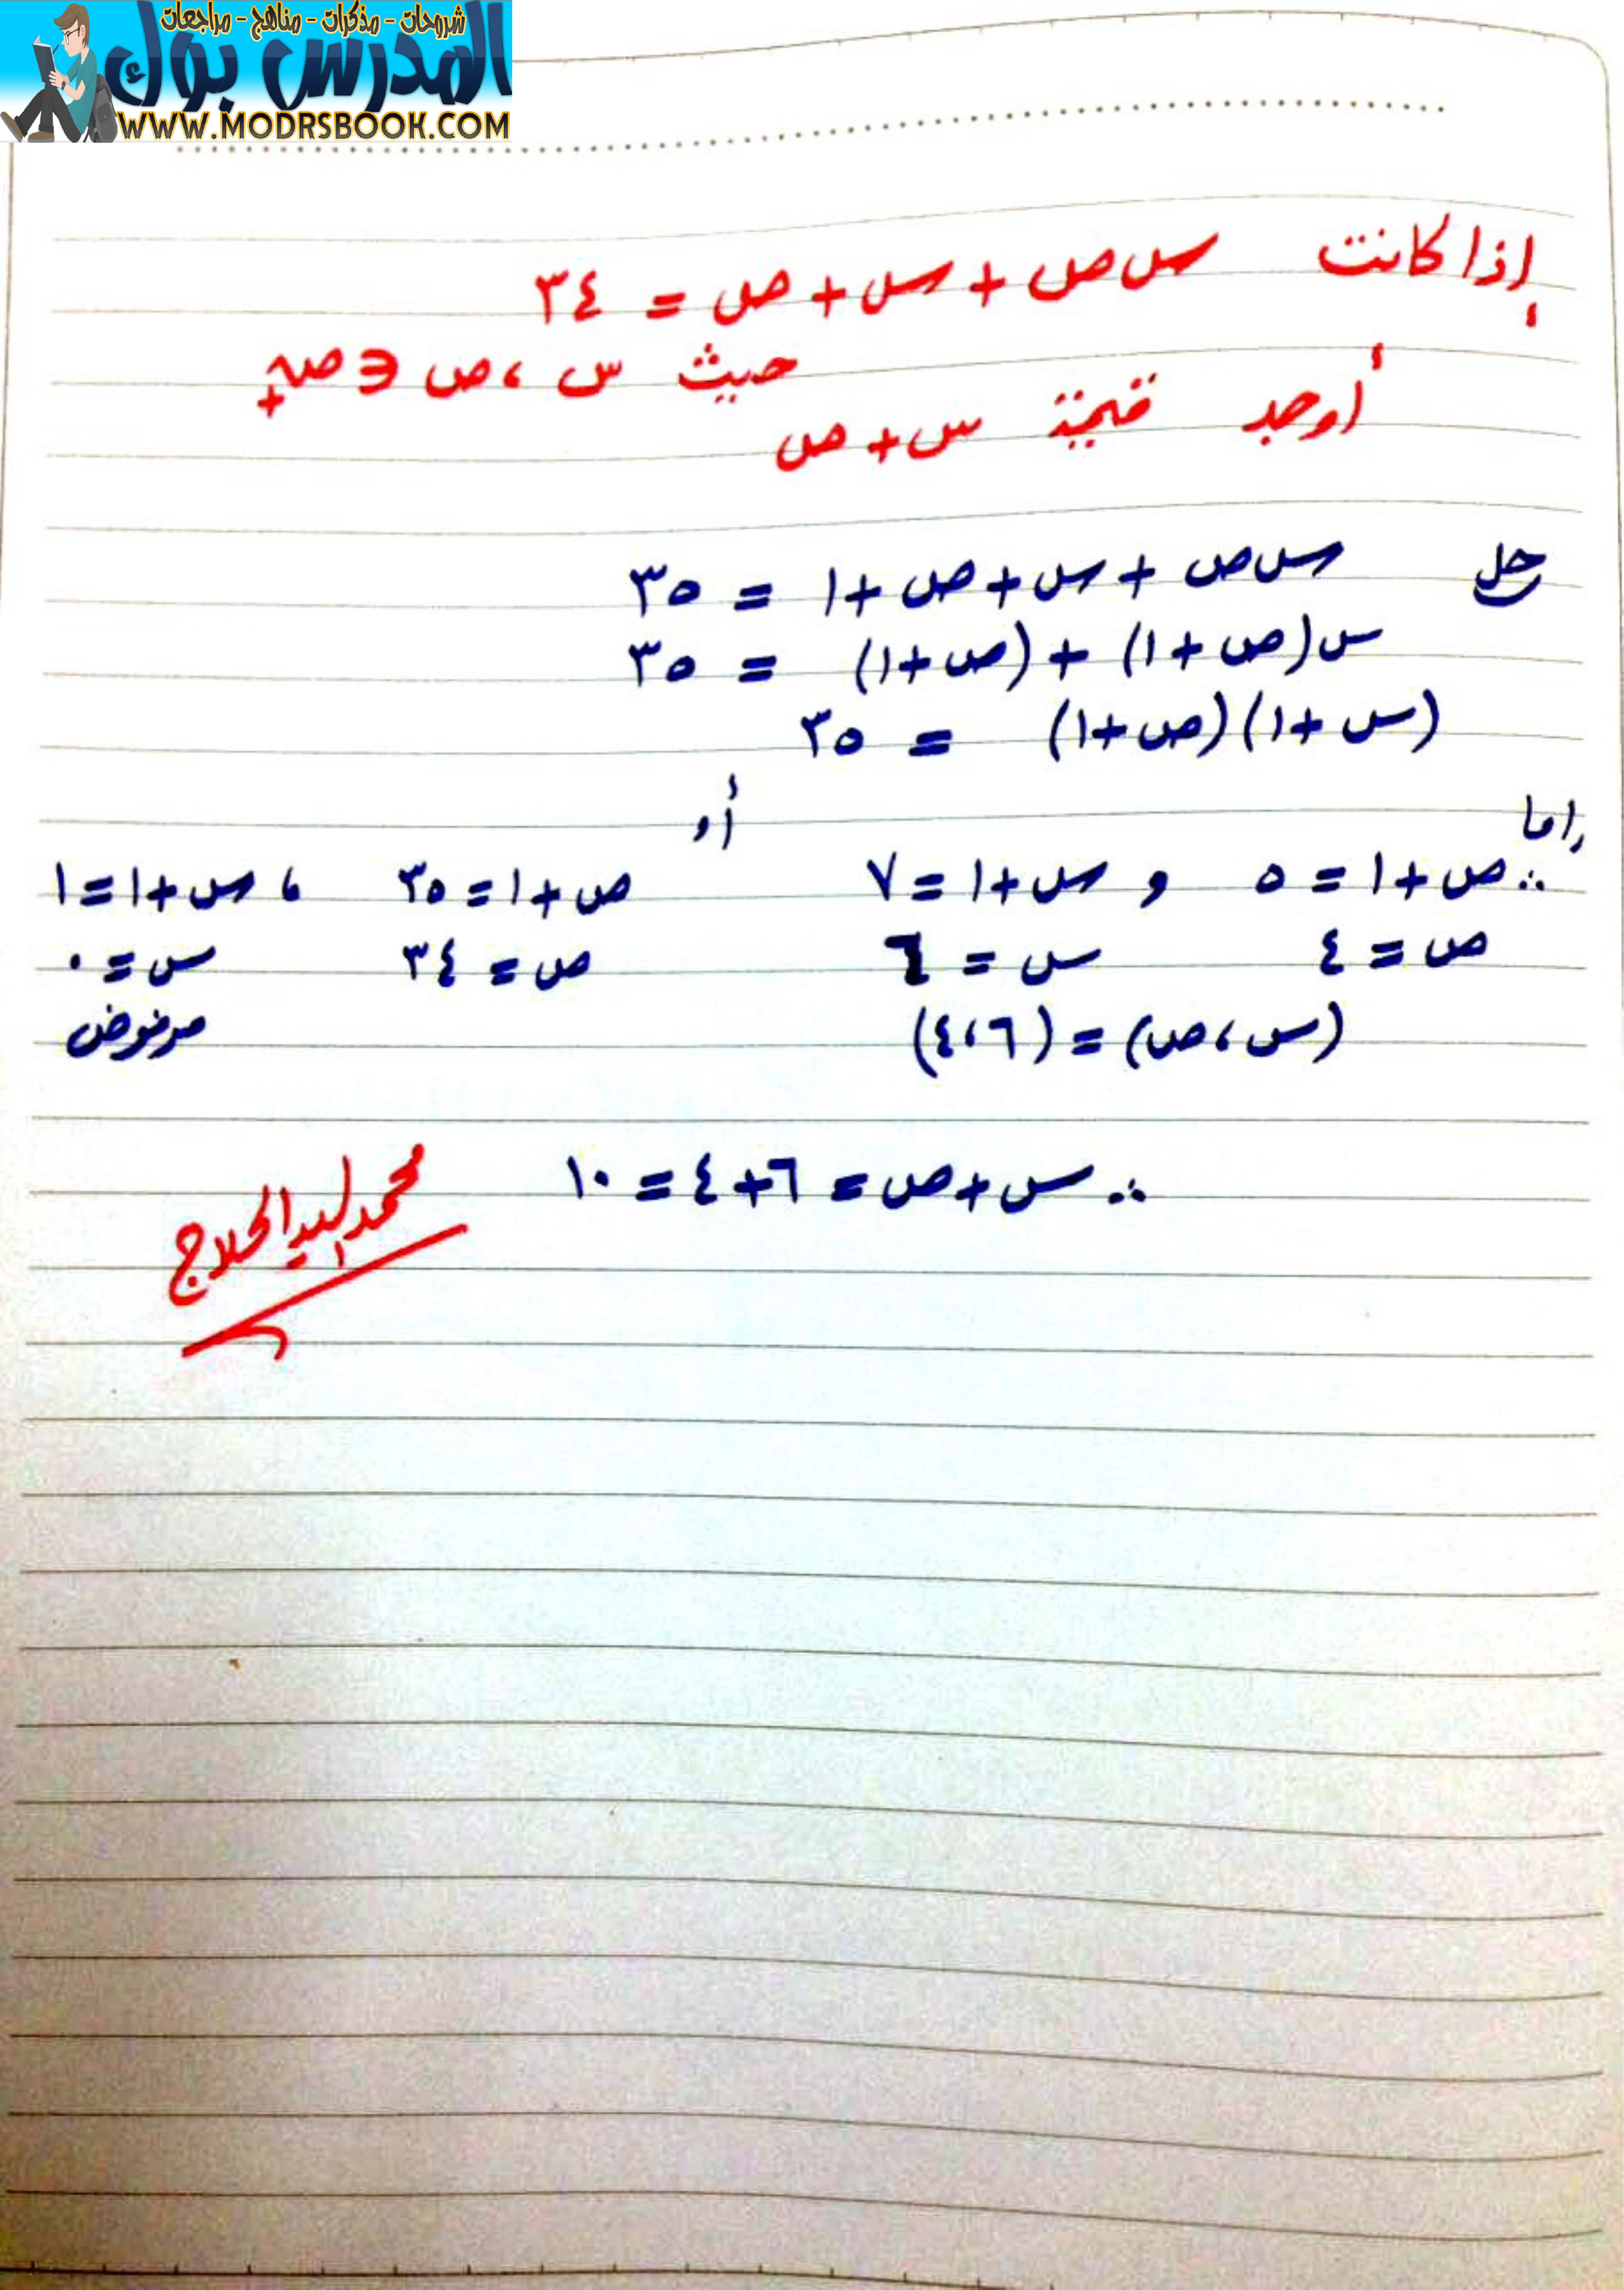 شروحات - مذكرات - مناهج - مراجعات
المدرس بوك
WWW.MODRSBOOK.COM
إذا كانت س ص + س + ص = ٣٤
حيث س ، ص ∈ ص+
أوجد قيمة س + ص
حل س ص + س + ص + ١ = ٣٥
س(ص + ١) + (ص + ١) = ٣٥
(س + ١)(ص + ١) = ٣٥
إما أو
∴ ص + ١ = ٥ و س + ١ = ٧ ص + ١ = ٣٥ ، س + ١ = ١
ص = ٤ س = ٦ ص = ٣٤ س = ٠
(س ، ص) = (٦ ، ٤) مرفوض
∴ س + ص = ٦ + ٤ = ١٠
محمد السيد الحلاج